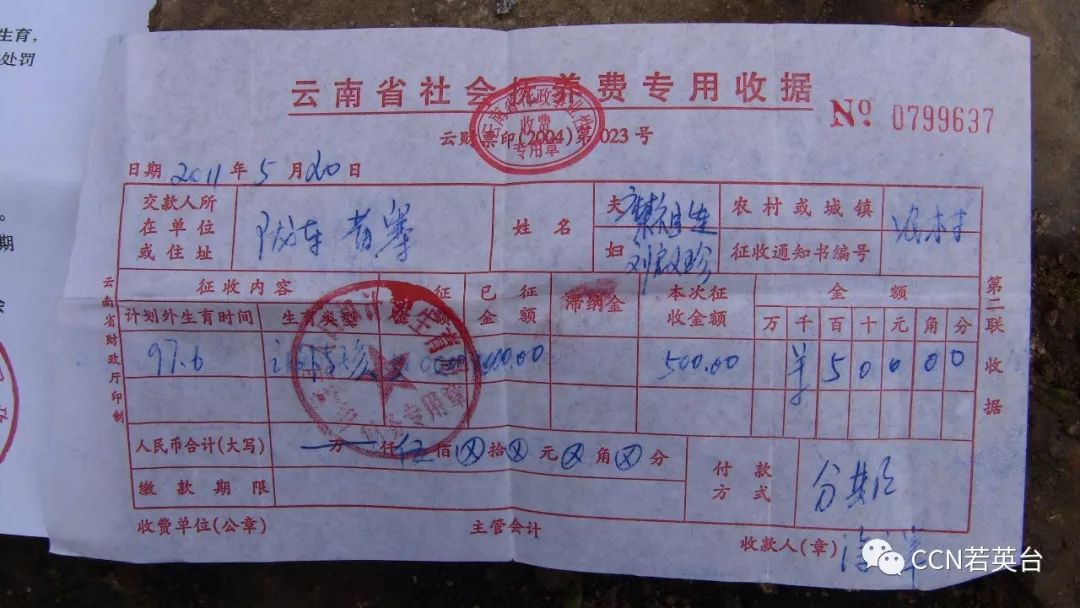 生育,
处罚
。
期
云南省社会抚养费专用收据
云财票印(2004)第023号
收费
专用章
№ 0799637
日期 2011 年 5 月 20 日
交款人所
在单位
或住址
姓名
夫
妇
农村或城镇
征收通知书编号
农村
征收内容
计划外生育时间
生育类型
应征
金额
已征
金额
滞纳金
本次征
收金额
金额
万 千 百 十 元 角 分
97.6
500.00
¥ 5 0 0 0 0
人民币合计(大写) 万 仟 伍 佰 ⊗ 拾 ⊗ 元 ⊗ 角 ⊗ 分
付款
方式
分期
缴款期限
财务专用章
收费单位(公章)
主管会计
收款人(章)
云南省财政厅印制
第二联 收据
CCN若英台